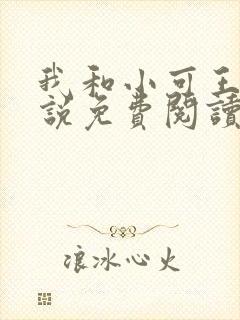 我和小可王
說免費閱讀
浪冰心火